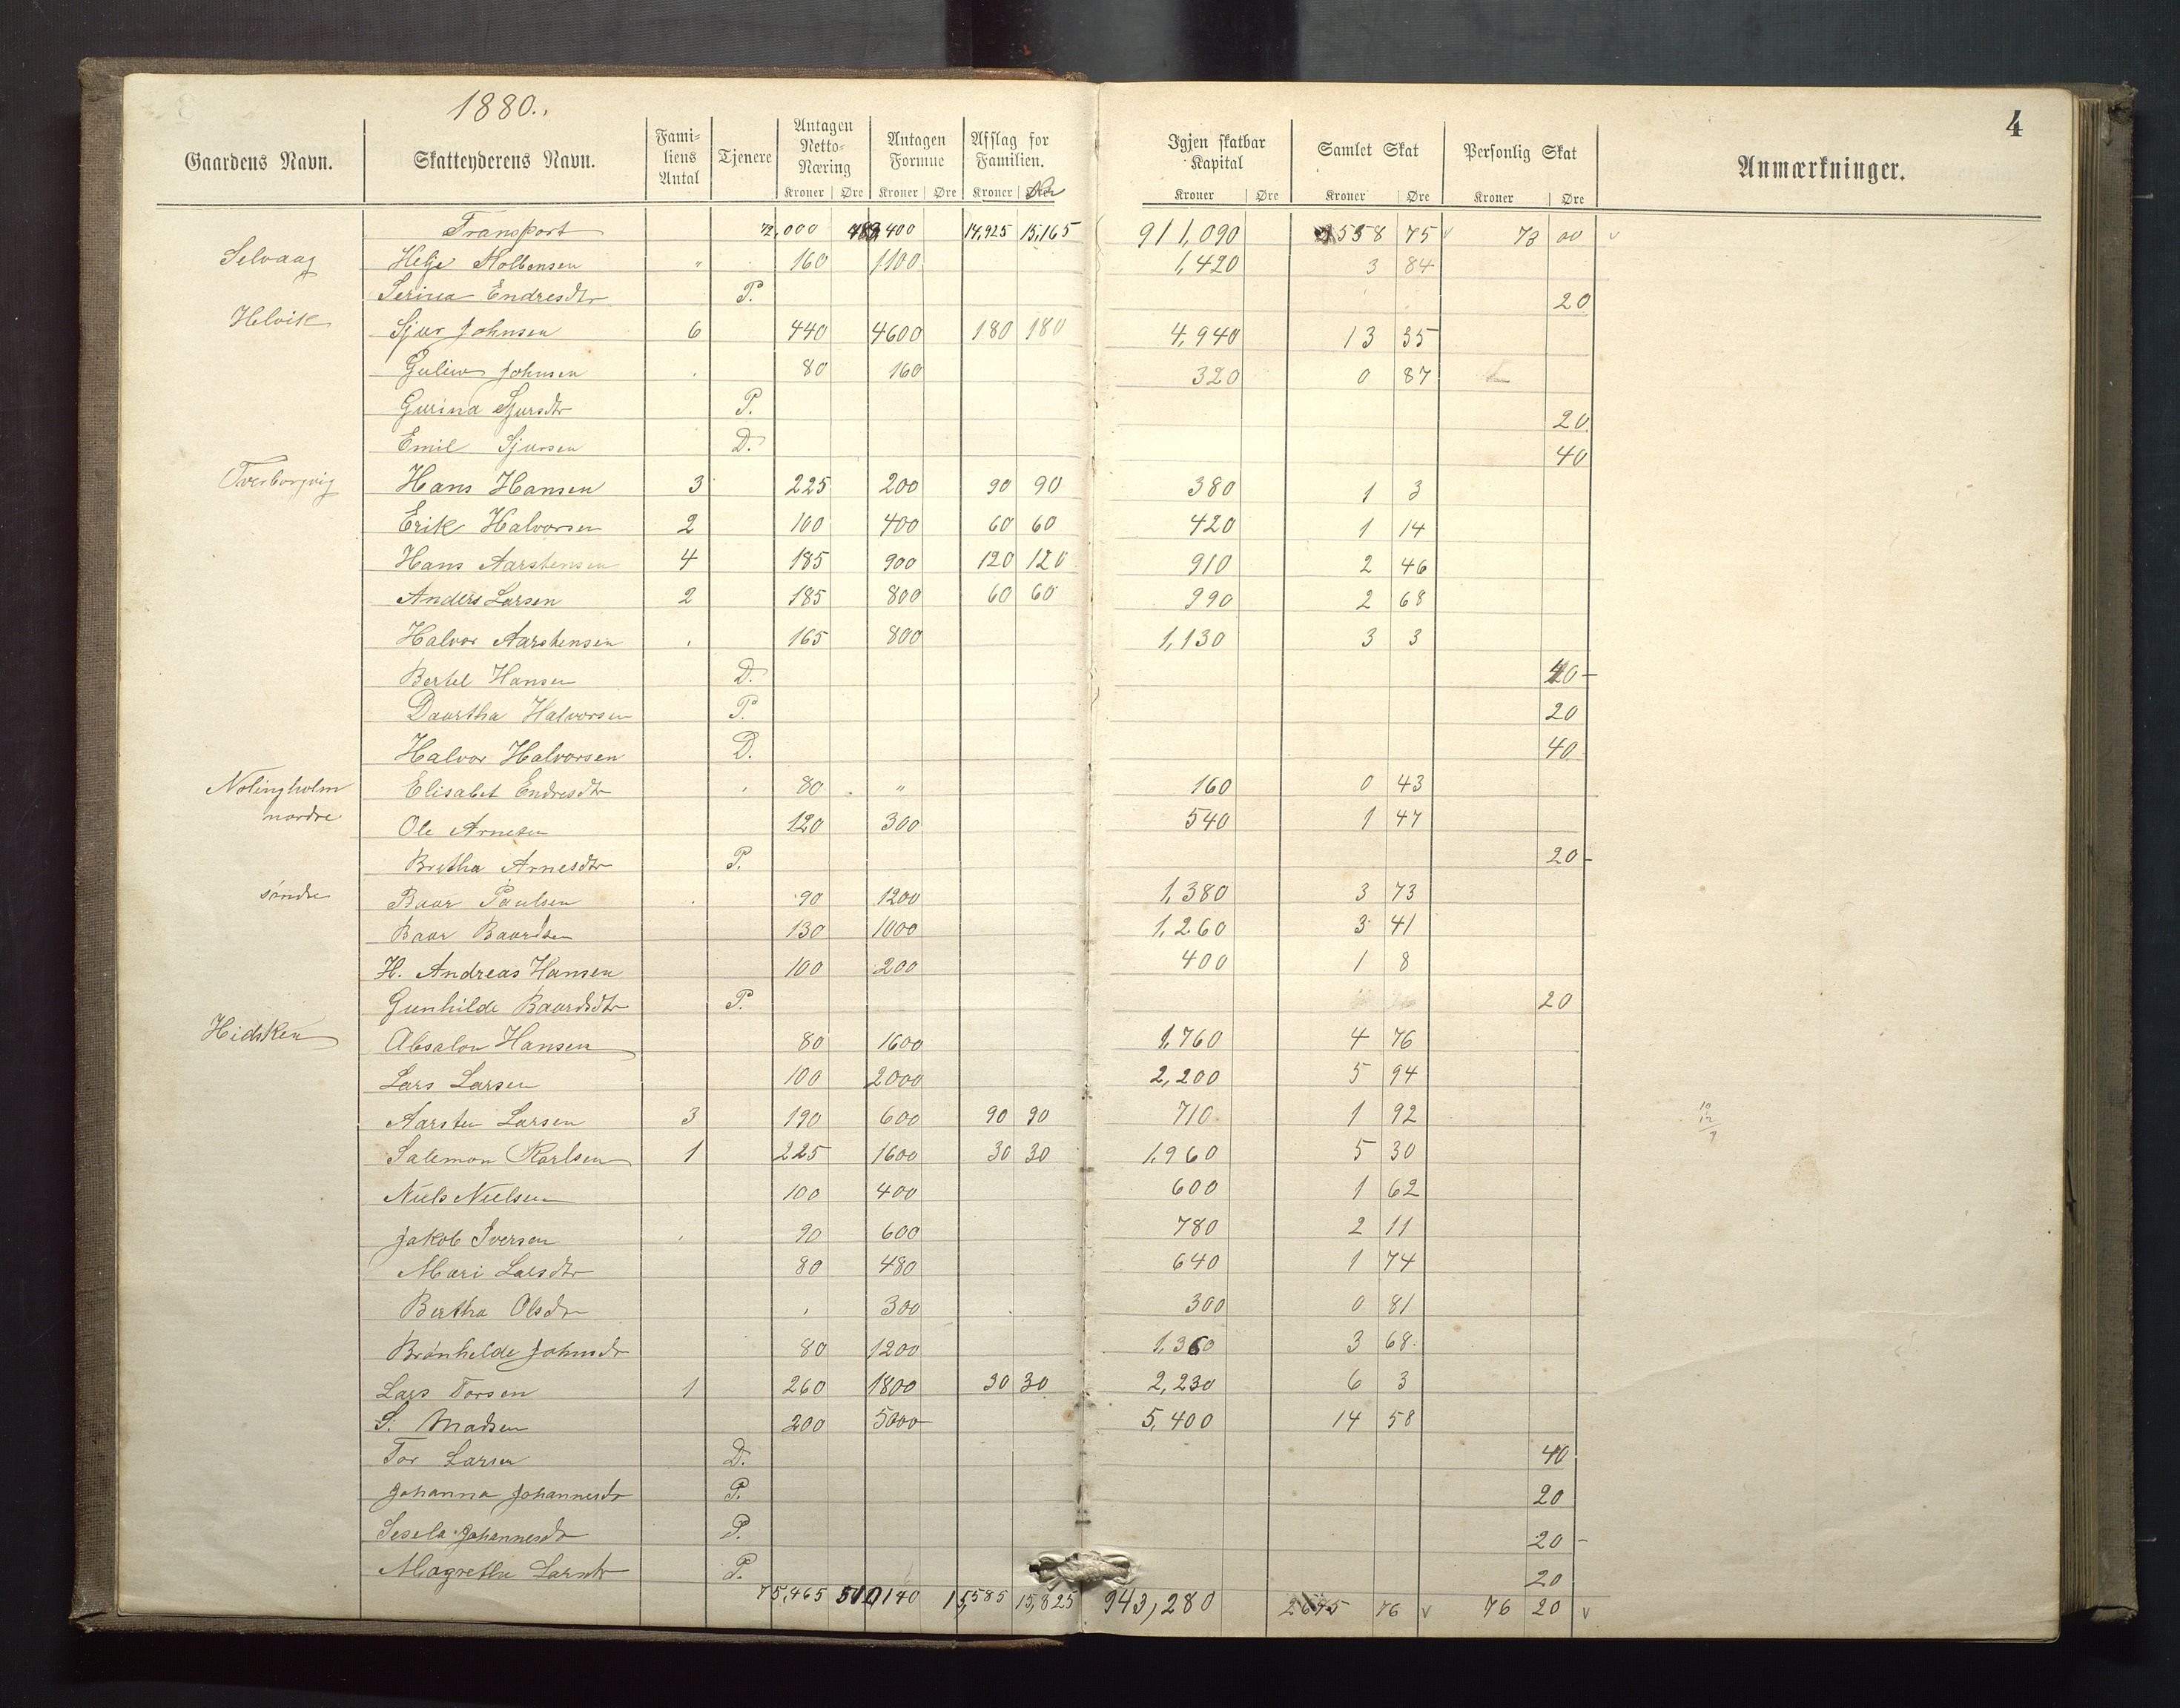 1880.
4
Gaardens Navn. Skatteyderens Navn. Fami-liens Antal Tjenere Antagen Netto-Næring Antagen Formue Afslag for Familien. Igjen skatbar Kapital Samlet Skat Personlig Skat Anmærkninger.
Kroner Øre Kroner Øre Kroner Kroner Øre Kroner Øre Kroner Øre
Transport 72,000 400 14,925 15,165 911,090 2558 75 73 00
Selvaag Helje Kolbensen " 160 1100 1,420 3 84
Serina Endresdtr P. 20
Helvik Sjur Johnsen 6 440 4600 180 180 4,940 13 35
Johnsen 80 160 320 0 87
Gurina Sjursdtr P. 20
Emil Sjursen D. 40
Hans Hansen 3 225 200 90 90 380 1 3
Erik Halvorsen 2 100 400 60 60 420 1 14
Hans Aarstensen 4 185 900 120 120 910 2 46
Anders Larsen 2 185 800 60 60 990 2 68
Halvor Aarstensen 165 800 1,130 3 3
Bertel Hansen D. 40
Daartha Halvorsen P. 20
Halvor Halvorsen D. 40
Nolingholm Elisabet Endresdtr 80 " 160 0 43
nordre Ole Arnesen 120 300 540 1 47
Bretha Arnesdtr P. 20
søndre Baar Paulsen 90 1200 1,380 3 73
Baar Baardsen 130 1000 1,260 3 41
H. Andreas Hansen 100 200 400 1 8
Gunhilde Baardsdtr P. 20
Hidsken Absalon Hansen 80 1600 1,760 4 76
Lars Larsen 100 2000 2,200 5 94
Aarsten Larsen 3 190 600 90 90 710 1 92
Salemon Karlsen 1 225 1600 30 30 1,960 5 30
Niels Nielsen 100 400 600 1 62
Jakob Iversen 90 600 780 2 11
Mari Larsdtr 80 480 640 1 74
Bertha Olsdtr 300 300 0 81
Brønhelde Johnsdtr 80 1200 1,360 3 68
Lars Torsen 1 260 1800 30 30 2,230 6 3
S. Madsen 200 5000 5,400 14 58
Tor Larsen D. 40
Johanna Johannesdtr P. 20
Sesela Johannesdtr P. 20
Magrethe Larsdtr P. 20
75,465 510,140 15,585 15,825 943,280 2645 76 76 20